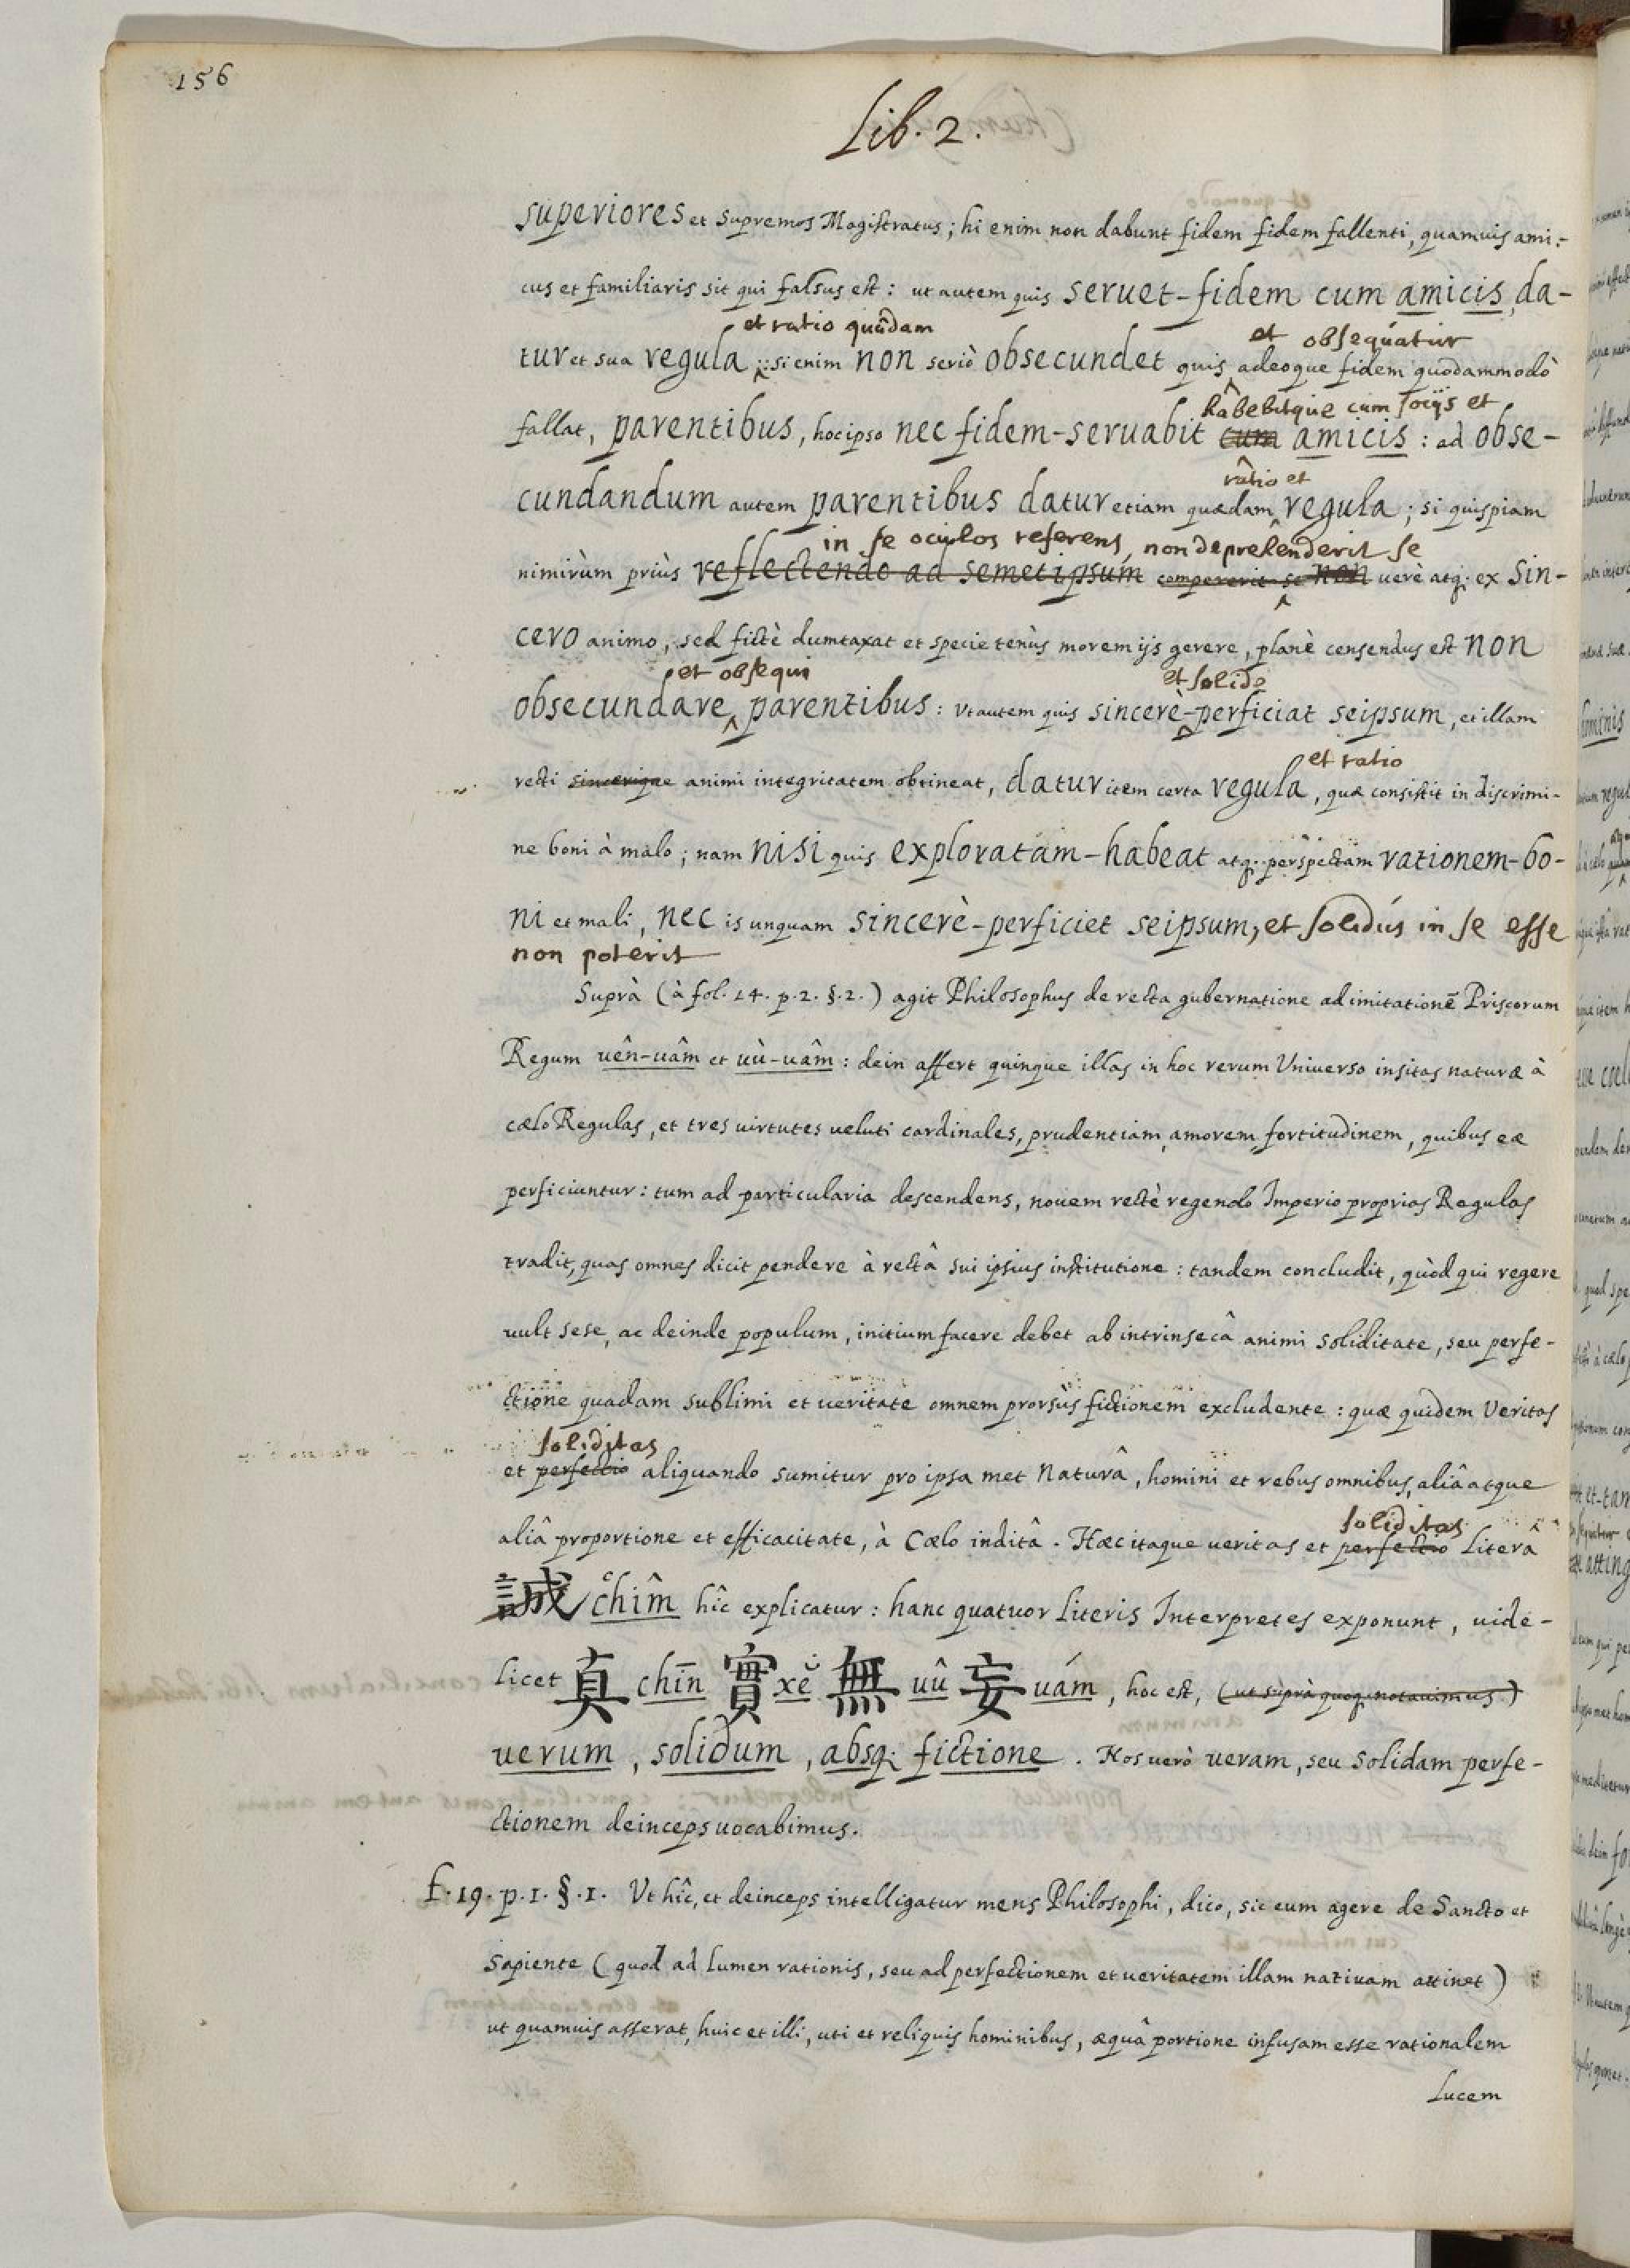 156
Lib. 2.
superiores et supremos Magistratus; hi enim non dabunt fidem fidem fallenti, quamuis ami-
cus et familiaris sit qui falsus est: ut autem quis seruet-fidem cum amicis, da-
et ratio quædam
et obsequatur
tur et sua regula; si enim non seriò obsecundet quis adeoque fidem quodammodò
habebitque cum socijs et
fallat, parentibus, hoc ipso nec fidem-seruabit cum amicis: ad obse-
ratio et
cundandum autem parentibus datur etiam quædam regula; si quispiam
in se oculos referens, non deprehenderit se
nimirùm priùs reflectendo ad semetipsum compererit se non uerè atq. ex sin-
cero animo, sed fictè dumtaxat et specie tenùs morem ijs gerere, planè censendus est non
et obsequi
et solidè
obsecundare parentibus: vt autem quis sincerè-perficiat seipsum, et illam
et ratio
recti sincerique animi integritatem obtineat, datur item certa regula, quæ consistit in discrimi-
ne boni à malo; nam nisi quis exploratam-habeat atq. perspectam rationem-bo-
ni et mali, nec is unquam sincerè-perficiet seipsum, et solidus in se esse
non poterit
Suprà (à fol. 14. p. 2. §. 2.) agit Philosophus de recta gubernatione ad imitationē Priscorum
Regum uên-uâm et uù-uâm: dein affert quinque illas in hoc rerum Vniuerso insitas naturæ à
cælo Regulas, et tres uirtutes ueluti cardinales, prudentiam, amorem, fortitudinem, quibus eæ
perficiuntur: tum ad particularia descendens, nouem rectè regendo Imperio proprias Regulas
tradit, quas omnes dicit pendere à rectâ sui ipsius institutione: tandem concludit, quòd qui regere
uult sese, ac deinde populum, initium facere debet ab intrinsecâ animi soliditate, seu perfe-
ctione quadam sublimi et ueritate omnem prorsùs fictionem excludente: quæ quidem Veritas
soliditas
et perfectio aliquando sumitur pro ipsa met Naturâ, homini et rebus omnibus, aliâ atque
soliditas
aliâ proportione et efficacitate, à Cælo inditâ. Hæc itaque ueritas et perfectio literâ
誠 chîm hîc explicatur: hanc quatuor literis Interpretes exponunt, uide-
licet 真 chīn 實 xĕ 無 uû 妄 uám, hoc est, (ut suprà quoq. notauimus)
uerum, solidum, absq. fictione. Nos uerò ueram, seu solidam perfe-
ctionem deinceps uocabimus.
f. 19. p. 1. §. 1. Vt hîc, et deinceps intelligatur mens Philosophi, dico, sic eum agere de Sancto et
Sapiente (quod ad lumen rationis, seu ad perfectionem et ueritatem illam natiuam attinet)
ut quamuis asserat, huic et illi, uti et reliquis hominibus, æquâ portione infusam esse rationalem
lucem